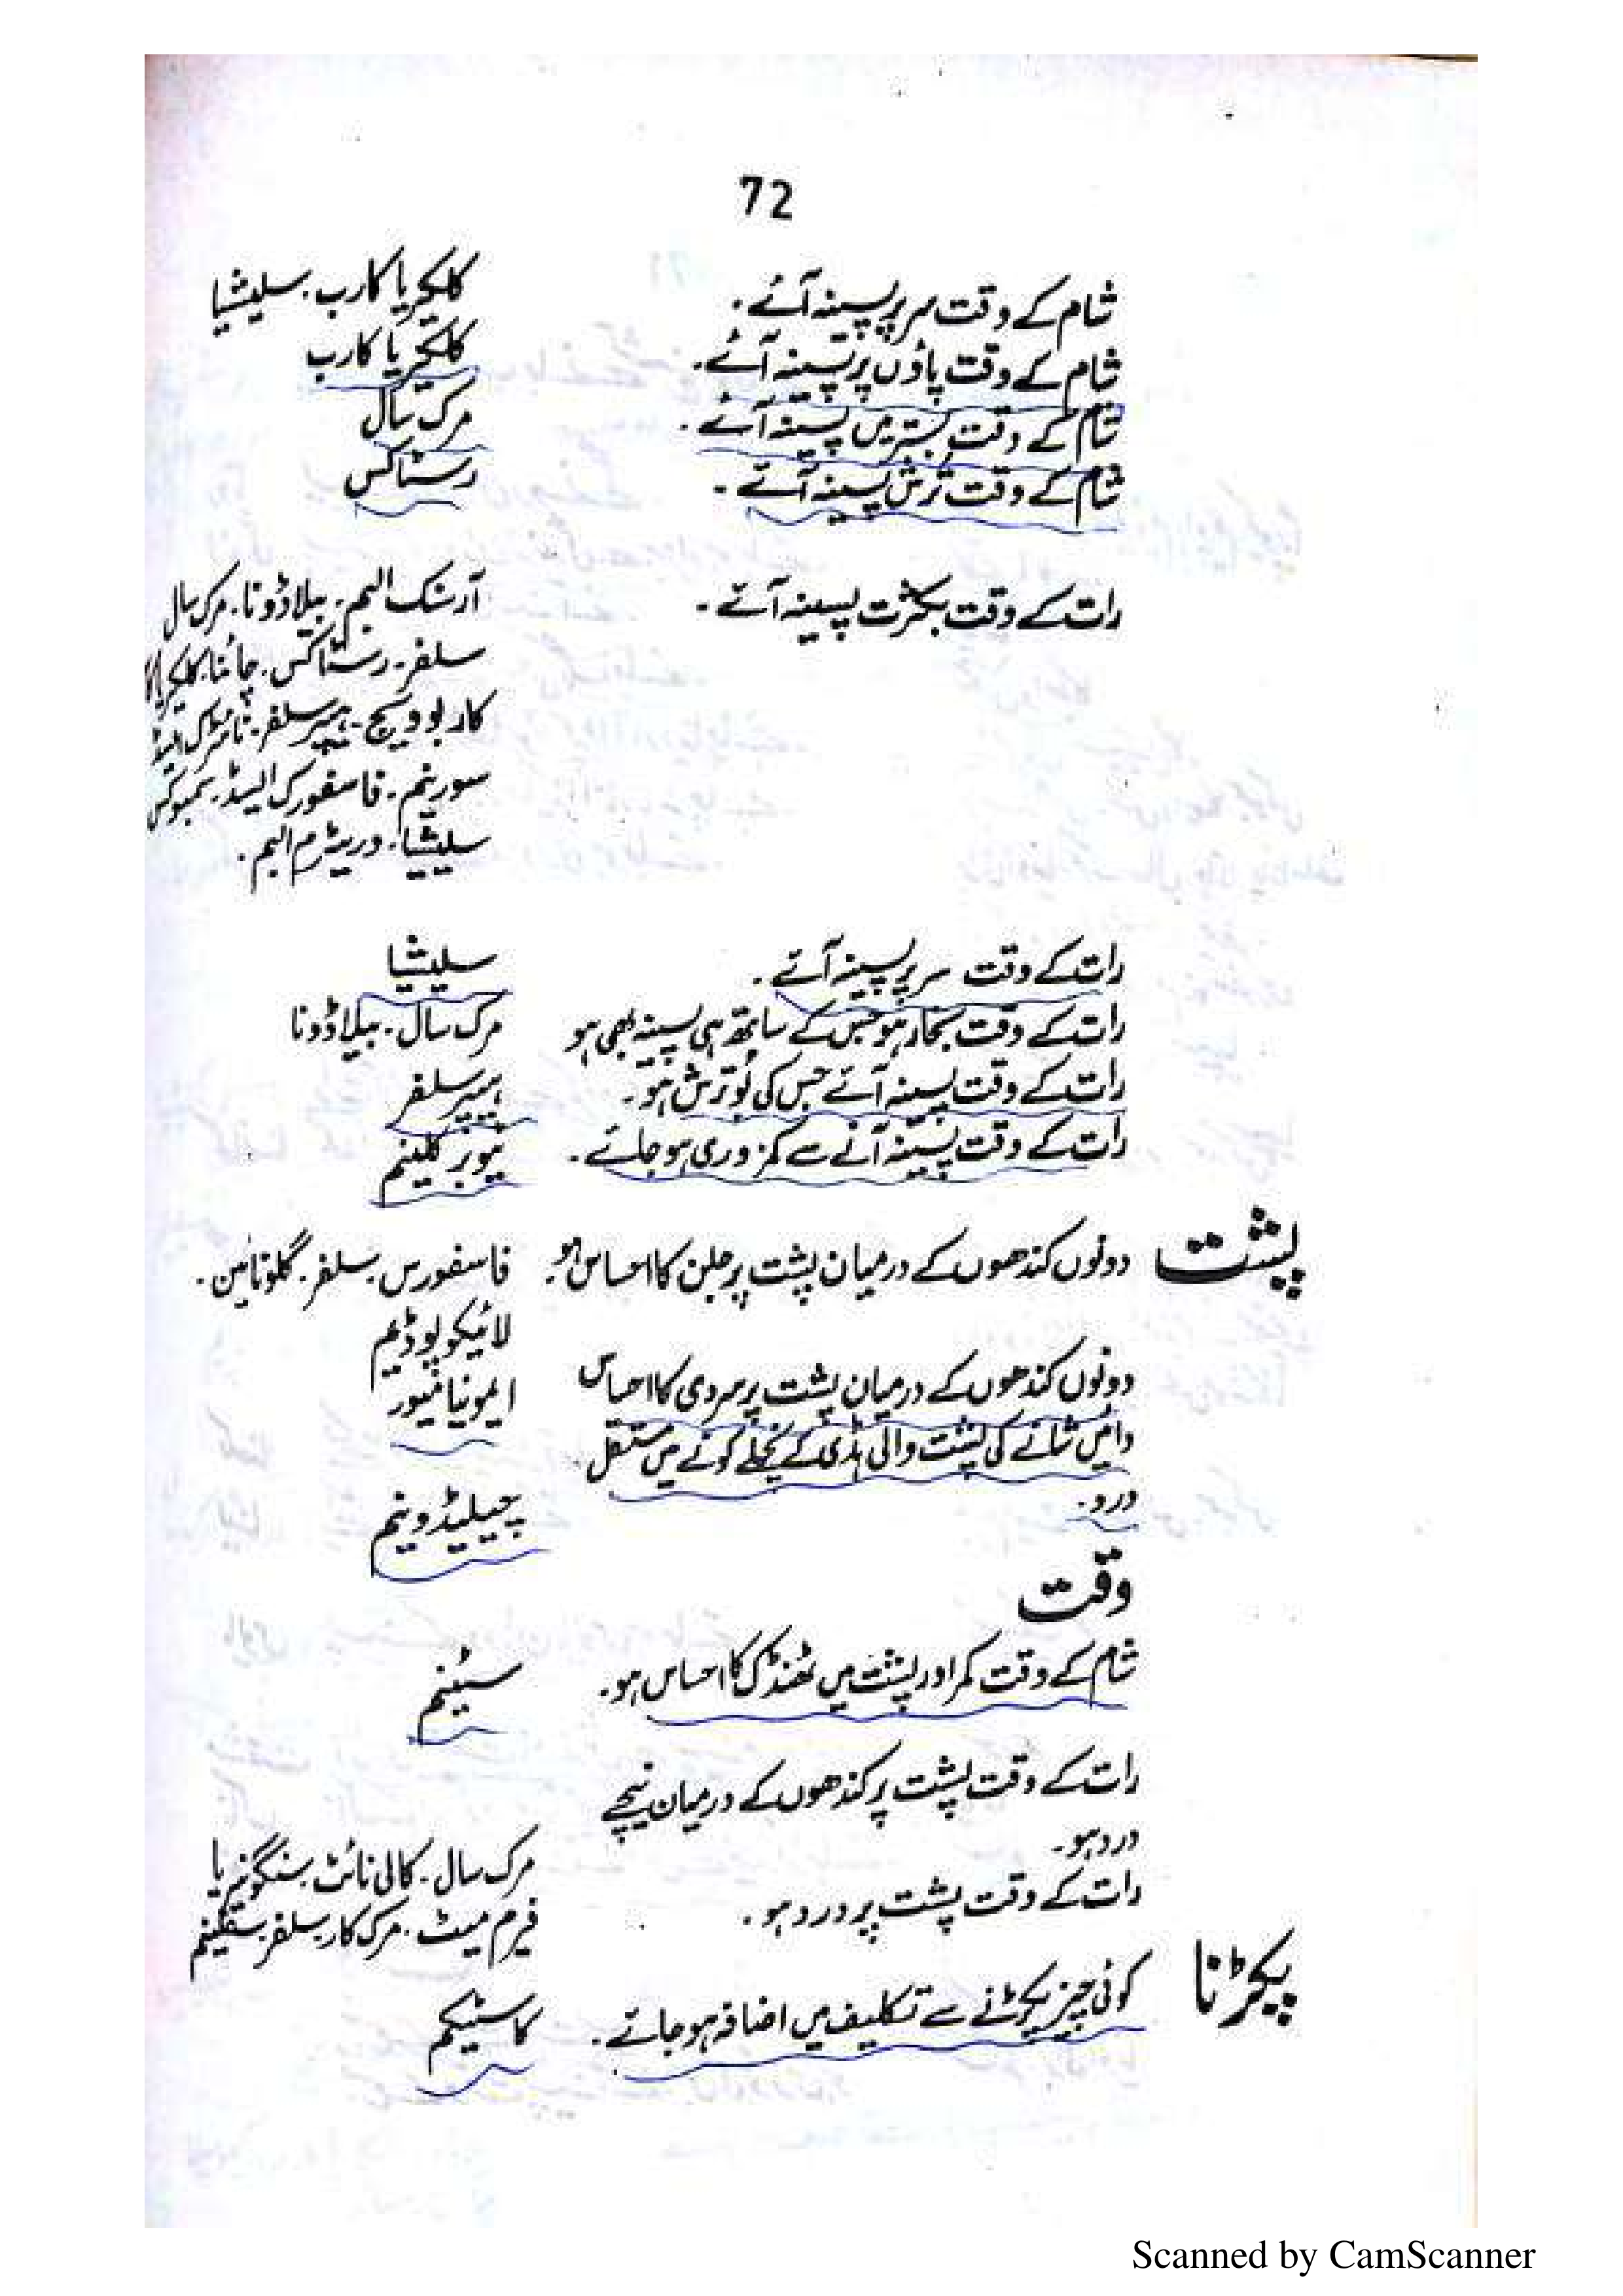 72
شام کے وقت سر پر پسینہ آئے۔ کلکیریا کارب۔ سلیشیا
شام کے وقت پاؤں پر پسینہ آئے۔ کلکیریا کارب
شام کے وقت بستر میں پسینہ آئے۔ مرک سال
شام کے وقت ترش پسینہ آئے۔ رسٹاکس
رات کے وقت بکثرت پسینہ آئے۔ آرسنک البم۔ بیلاڈونا۔ مرک سال
سلفر۔ رسٹاکس۔ چائنا۔
کاربوویج۔ ہیپر سلفر۔ نائٹرک ایسڈ
سورینم۔ فاسفورک ایسڈ۔ سمبوکس
سلیشیا۔ وریٹرم البم۔
رات کے وقت سر پر پسینہ آئے۔ سلیشیا
رات کے وقت بخار ہو جس کے ساتھ ہی پسینہ بھی ہو مرک سال۔ بیلاڈونا
رات کے وقت پسینہ آئے جس کی بُو ترش ہو۔ ہیپر سلفر
رات کے وقت پسینہ آنے سے کمزوری ہو جائے۔ ٹیوبرکلینم
پشت دونوں کندھوں کے درمیان پشت پر جلن کا احساس ہو۔ فاسفورس۔ سلفر۔ گلونائین۔
لائیکوپوڈیم
دونوں کندھوں کے درمیان پشت پر سردی کا احساس ایمونیا میور
دائیں شانے کی پشت والی ہڈی کے نچلے کونے میں مستقل
درد۔ چیلیڈونیم
وقت
شام کے وقت کمر اور پشت میں ٹھنڈک کا احساس ہو۔ سٹینم
رات کے وقت پشت پر کندھوں کے درمیان نیچے
درد ہو۔ مرک سال۔ کالی نائٹ۔ سنگونیریا
رات کے وقت پشت پر درد ہو۔ فیرم میٹ۔ مرک کار۔ سلفر۔
پکڑنا کوئی چیز پکڑنے سے تکلیف میں اضافہ ہو جائے۔ کاسٹیکم
Scanned by CamScanner